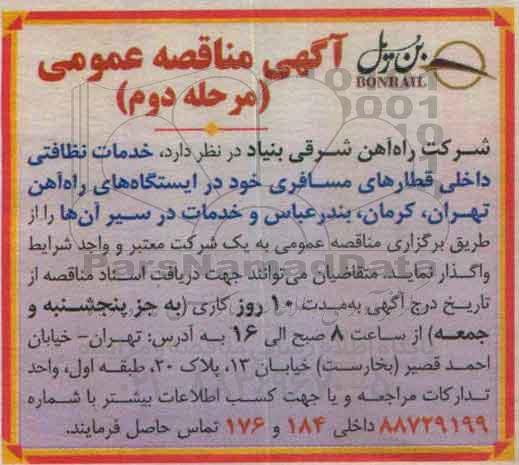 بن ریل
BONRAIL
آگهی مناقصه عمومی
(مرحله دوم)
شرکت راه‌آهن شرقی بنیاد در نظر دارد، خدمات نظافتی
داخلی قطارهای مسافری خود در ایستگاه‌های راه‌آهن
تهران، کرمان، بندرعباس و خدمات در سیر آن‌ها را از
طریق برگزاری مناقصه عمومی به یک شرکت معتبر و واجد شرایط
واگذار نماید. متقاضیان می‌توانند جهت دریافت اسناد مناقصه از
تاریخ درج آگهی به‌مدت ۱۰ روز کاری (به جز پنجشنبه و
جمعه) از ساعت ۸ صبح الی ۱۶ به آدرس: تهران- خیابان
احمد قصیر (بخارست) خیابان ۱۳، پلاک ۲۰، طبقه اول، واحد
تدارکات مراجعه و یا جهت کسب اطلاعات بیشتر با شماره
۸۸۷۲۹۱۹۹ داخلی ۱۸۴ و ۱۷۶ تماس حاصل فرمایند.
ParsNamadData